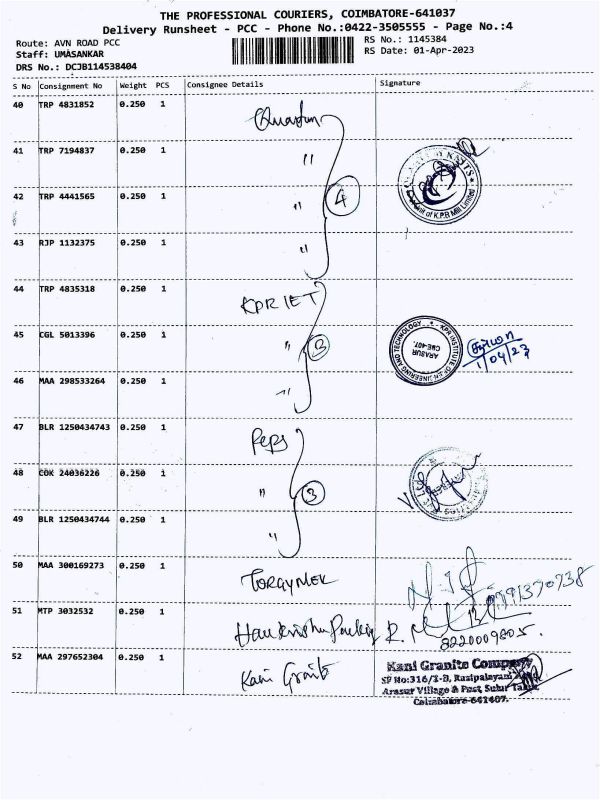 THE PROFESSIONAL COURIERS, COIMBATORE-641037
Delivery Runsheet - PCC - Phone No.:0422-3505555 - Page No.:4
Route: AVN ROAD PCC
RS No.: 1145384
Staff: UMASANKAR
RS Date: 01-Apr-2023
DRS No.: DCJB114538404
S No Consignment No Weight PCS Consignee Details Signature
40 TRP 4831852 0.250 1
41 TRP 7194837 0.250 1 "
4
42 TRP 4441565 0.250 1 "
of K.P.R Mill Limited
43 RJP 1132375 0.250 1 "
44 TRP 4835318 0.250 1 KPRIET
45 CGL 5013396 0.250 1 " 3
KPR INSTITUTE OF ENGINEERING AND TECHNOLOGY
ARASUR
CBE-407.
1/04/23
46 MAA 298533264 0.250 1 "
47 BLR 1250434743 0.250 1 Peps
48 COK 24036226 0.250 1 " 3
49 BLR 1250434744 0.250 1 "
50 MAA 300169273 0.250 1
51 MTP 3032532 0.250 1
8220009805.
52 MAA 297652304 0.250 1 Kani Granite
Kani Granite Company
SF No:316/2-B, Rasipalayam
Arasur Village & Post, Sulur Taluk
Coimbatore-641407.